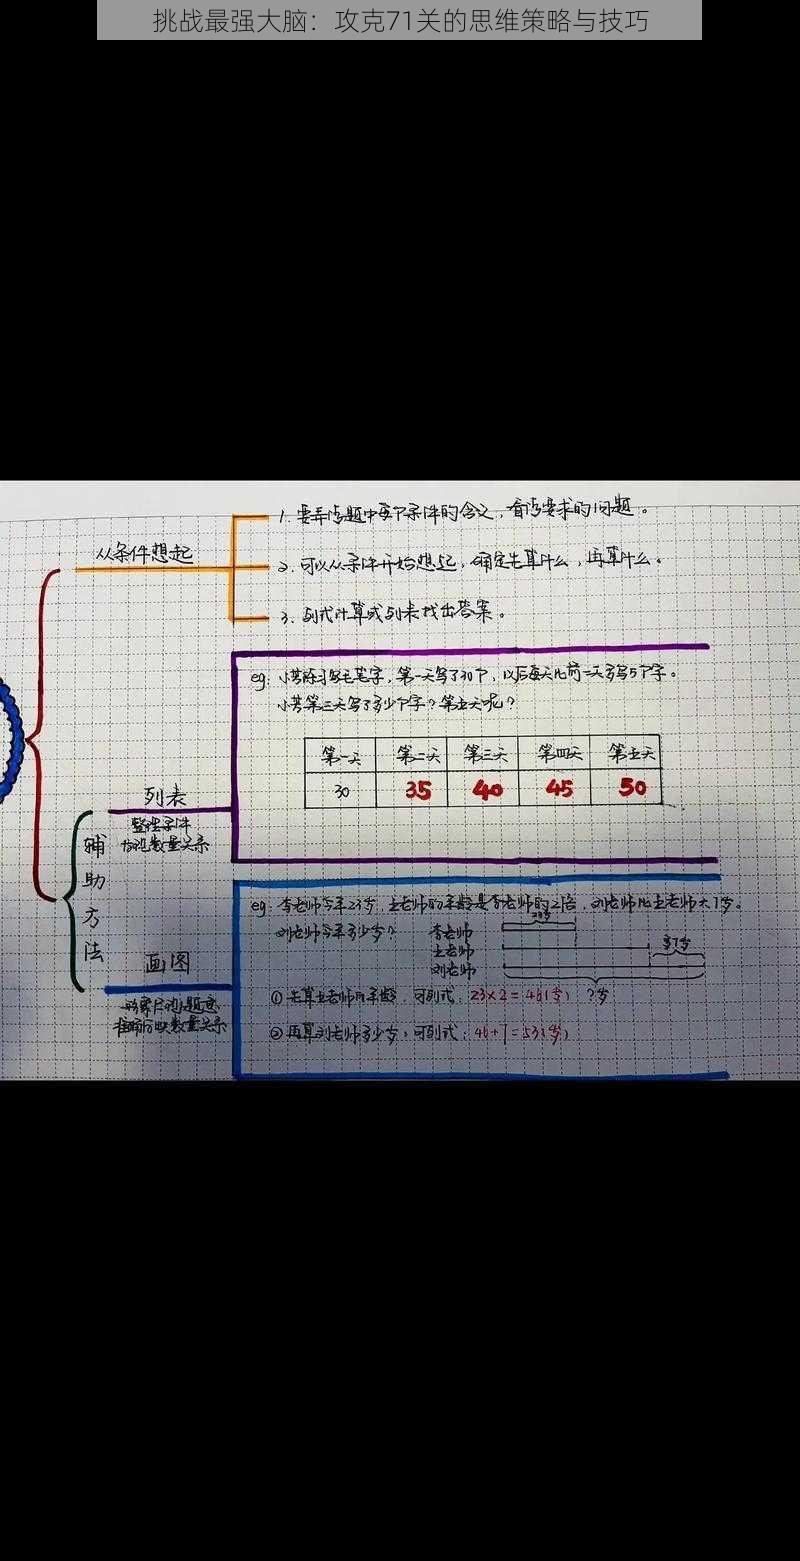 挑战最强大脑：攻克71关的思维策略与技巧
从条件想起
1. 要弄清题中每个条件的含义，看清要求的问题。
2. 可以从条件开始想起，确定先算什么，再算什么。
3. 列式计算或列表找出答案。
辅助方法
列表
整理条件
数量关系
eg: 小芳练习写毛笔字，第一天写了30个，以后每天比前一天多写5个字。
小芳第三天写了多少个字？第五天呢？
第一天 第二天 第三天 第四天 第五天
30 35 40 45 50
画图
准确分析数量关系
eg: 李老师今年23岁，王老师的年龄是李老师的2倍，刘老师比王老师大7岁。
刘老师今年多少岁？
李老师 23岁
王老师 多7岁
刘老师
?岁
①先算王老师的年龄，可列式：23×2=46(岁)
②再算刘老师多少岁，可列式：46+7=53(岁)